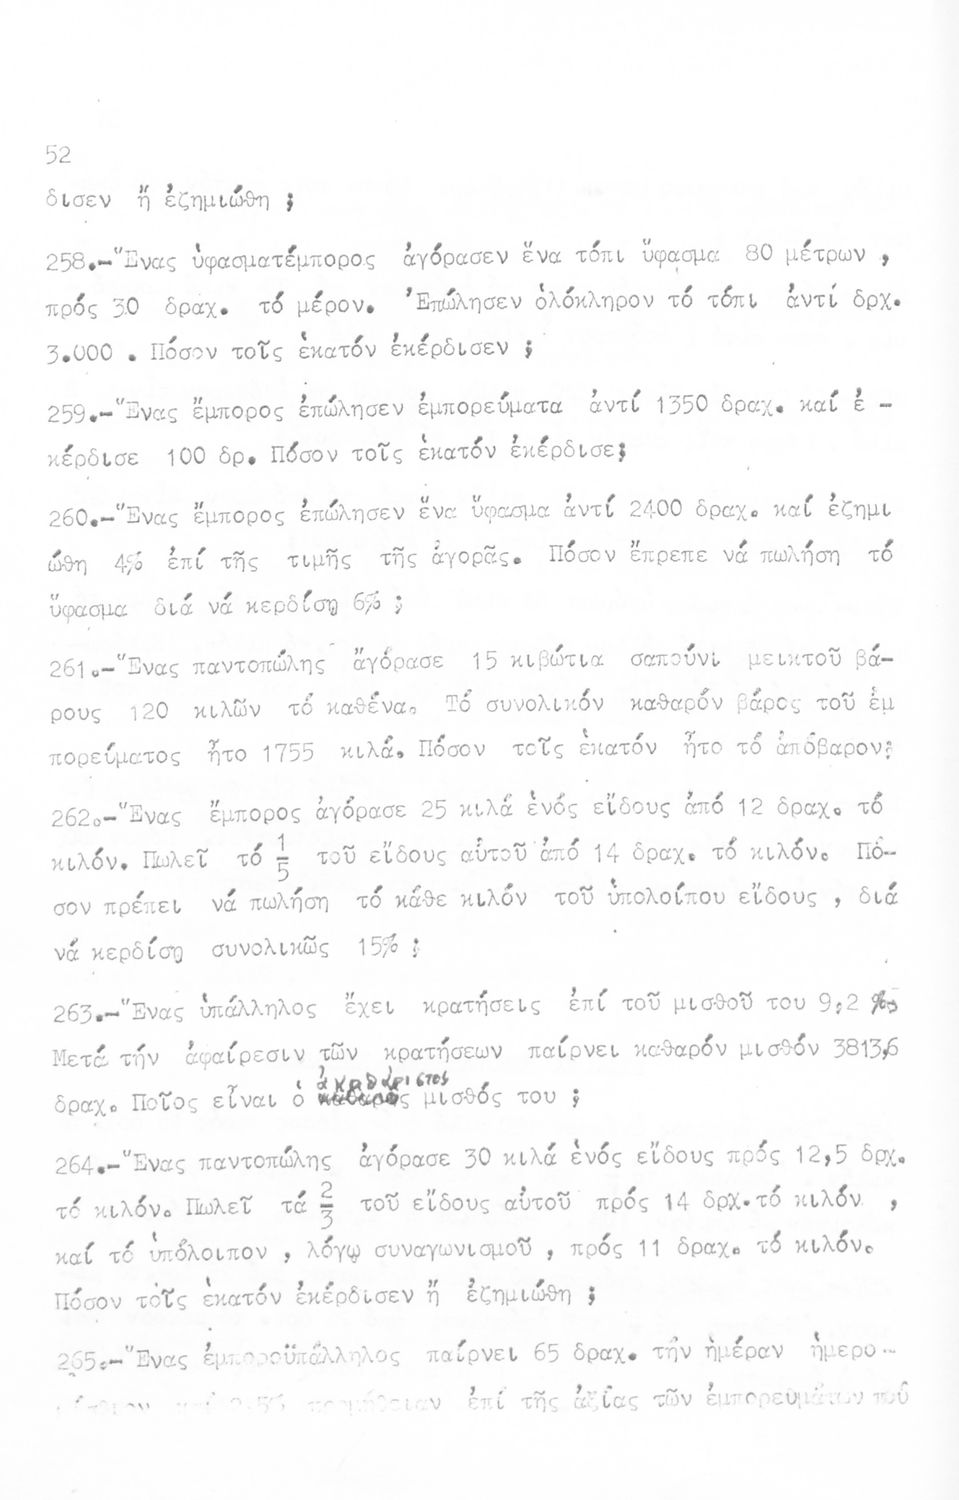 52
δισεν ἤ ἐζημιώθη ;
258.-Ἕνας ὑφασματέμπορος ἀγόρασεν ἕνα τόπι ὕφασμα 80 μέτρων ,
πρός 30 δραχ. τό μέρον. Ἐπώλησεν ὁλόκληρον τό τόπι ἀντί δρχ.
3.000 . Πόσον τοῖς ἑκατόν ἐκέρδισεν ;
259.-Ἕνας ἔμπορος ἐπώλησεν ἐμπορεύματα ἀντί 1350 δραχ. καί ἐ -
κέρδισε 100 δρ. Πόσον τοῖς ἑκατόν ἐκέρδισε;
260.-Ἕνας ἔμπορος ἐπώλησεν ἕνα ὕφασμα ἀντί 2400 δραχ. καί ἐζημι
ώθη 4% ἐπί τῆς τιμῆς τῆς ἀγορᾶς. Πόσον ἔπρεπε νά πωλήση τό
ὕφασμα διά νά κερδίσῃ 6% ;
261.-Ἕνας παντοπώλης ἀγόρασε 15 κιβώτια σαπούνι μεικτοῦ βά-
ρους 120 κιλῶν τό καθένα. Τό συνολικόν καθαρόν βάρος τοῦ ἐμ
πορεύματος ἦτο 1755 κιλά. Πόσον τοῖς ἑκατόν ἦτο τό ἀπόβαρον;
262.-Ἕνας ἔμπορος ἀγόρασε 25 κιλά ἑνός εἴδους ἀπό 12 δραχ. τό
κιλόν. Πωλεῖ τό 1/5 τοῦ εἴδους αὐτοῦ ἀπό 14 δραχ. τό κιλόν. Πό-
σον πρέπει νά πωλήση τό κάθε κιλόν τοῦ ὑπολοίπου εἴδους , διά
νά κερδίσῃ συνολικῶς 15% ;
263.-Ἕνας ὑπάλληλος ἔχει κρατήσεις ἐπί τοῦ μισθοῦ του 9,2 %
Μετά τήν ἀφαίρεσιν τῶν κρατήσεων παίρνει καθαρόν μισθόν 3813,6
δραχ. Ποῖος εἶναι ὁ ἀκαθάριστος μισθός του ;
264.-Ἕνας παντοπώλης ἀγόρασε 30 κιλά ἑνός εἴδους πρός 12,5 δρχ.
τό κιλόν. Πωλεῖ τά 2/3 τοῦ εἴδους αὐτοῦ πρός 14 δρχ.τό κιλόν ,
καί τό ὑπόλοιπον , λόγῳ συναγωνισμοῦ , πρός 11 δραχ. τό κιλόν.
Πόσον τοῖς ἑκατόν ἐκέρδισεν ἤ ἐζημιώθη ;
265.-Ἕνας ἐμποροϋπάλληλος παίρνει 65 δραχ. τήν ἡμέραν ἡμερο-
ἐπί τῆς ἀξίας τῶν ἐμπορευμάτων πού